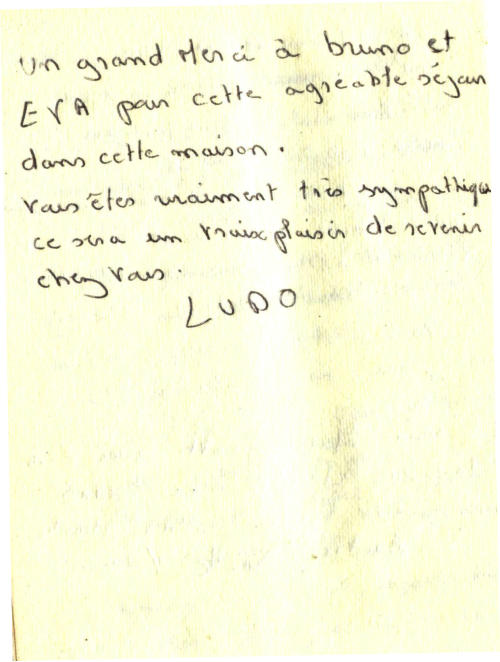 un grand Merci à bruno et
EVA pour cette agréable séjour
dans cette maison.
vous êtes vraiment très sympathique
ce sera un vraix plaisir de revenir
chez vous.
LUDO